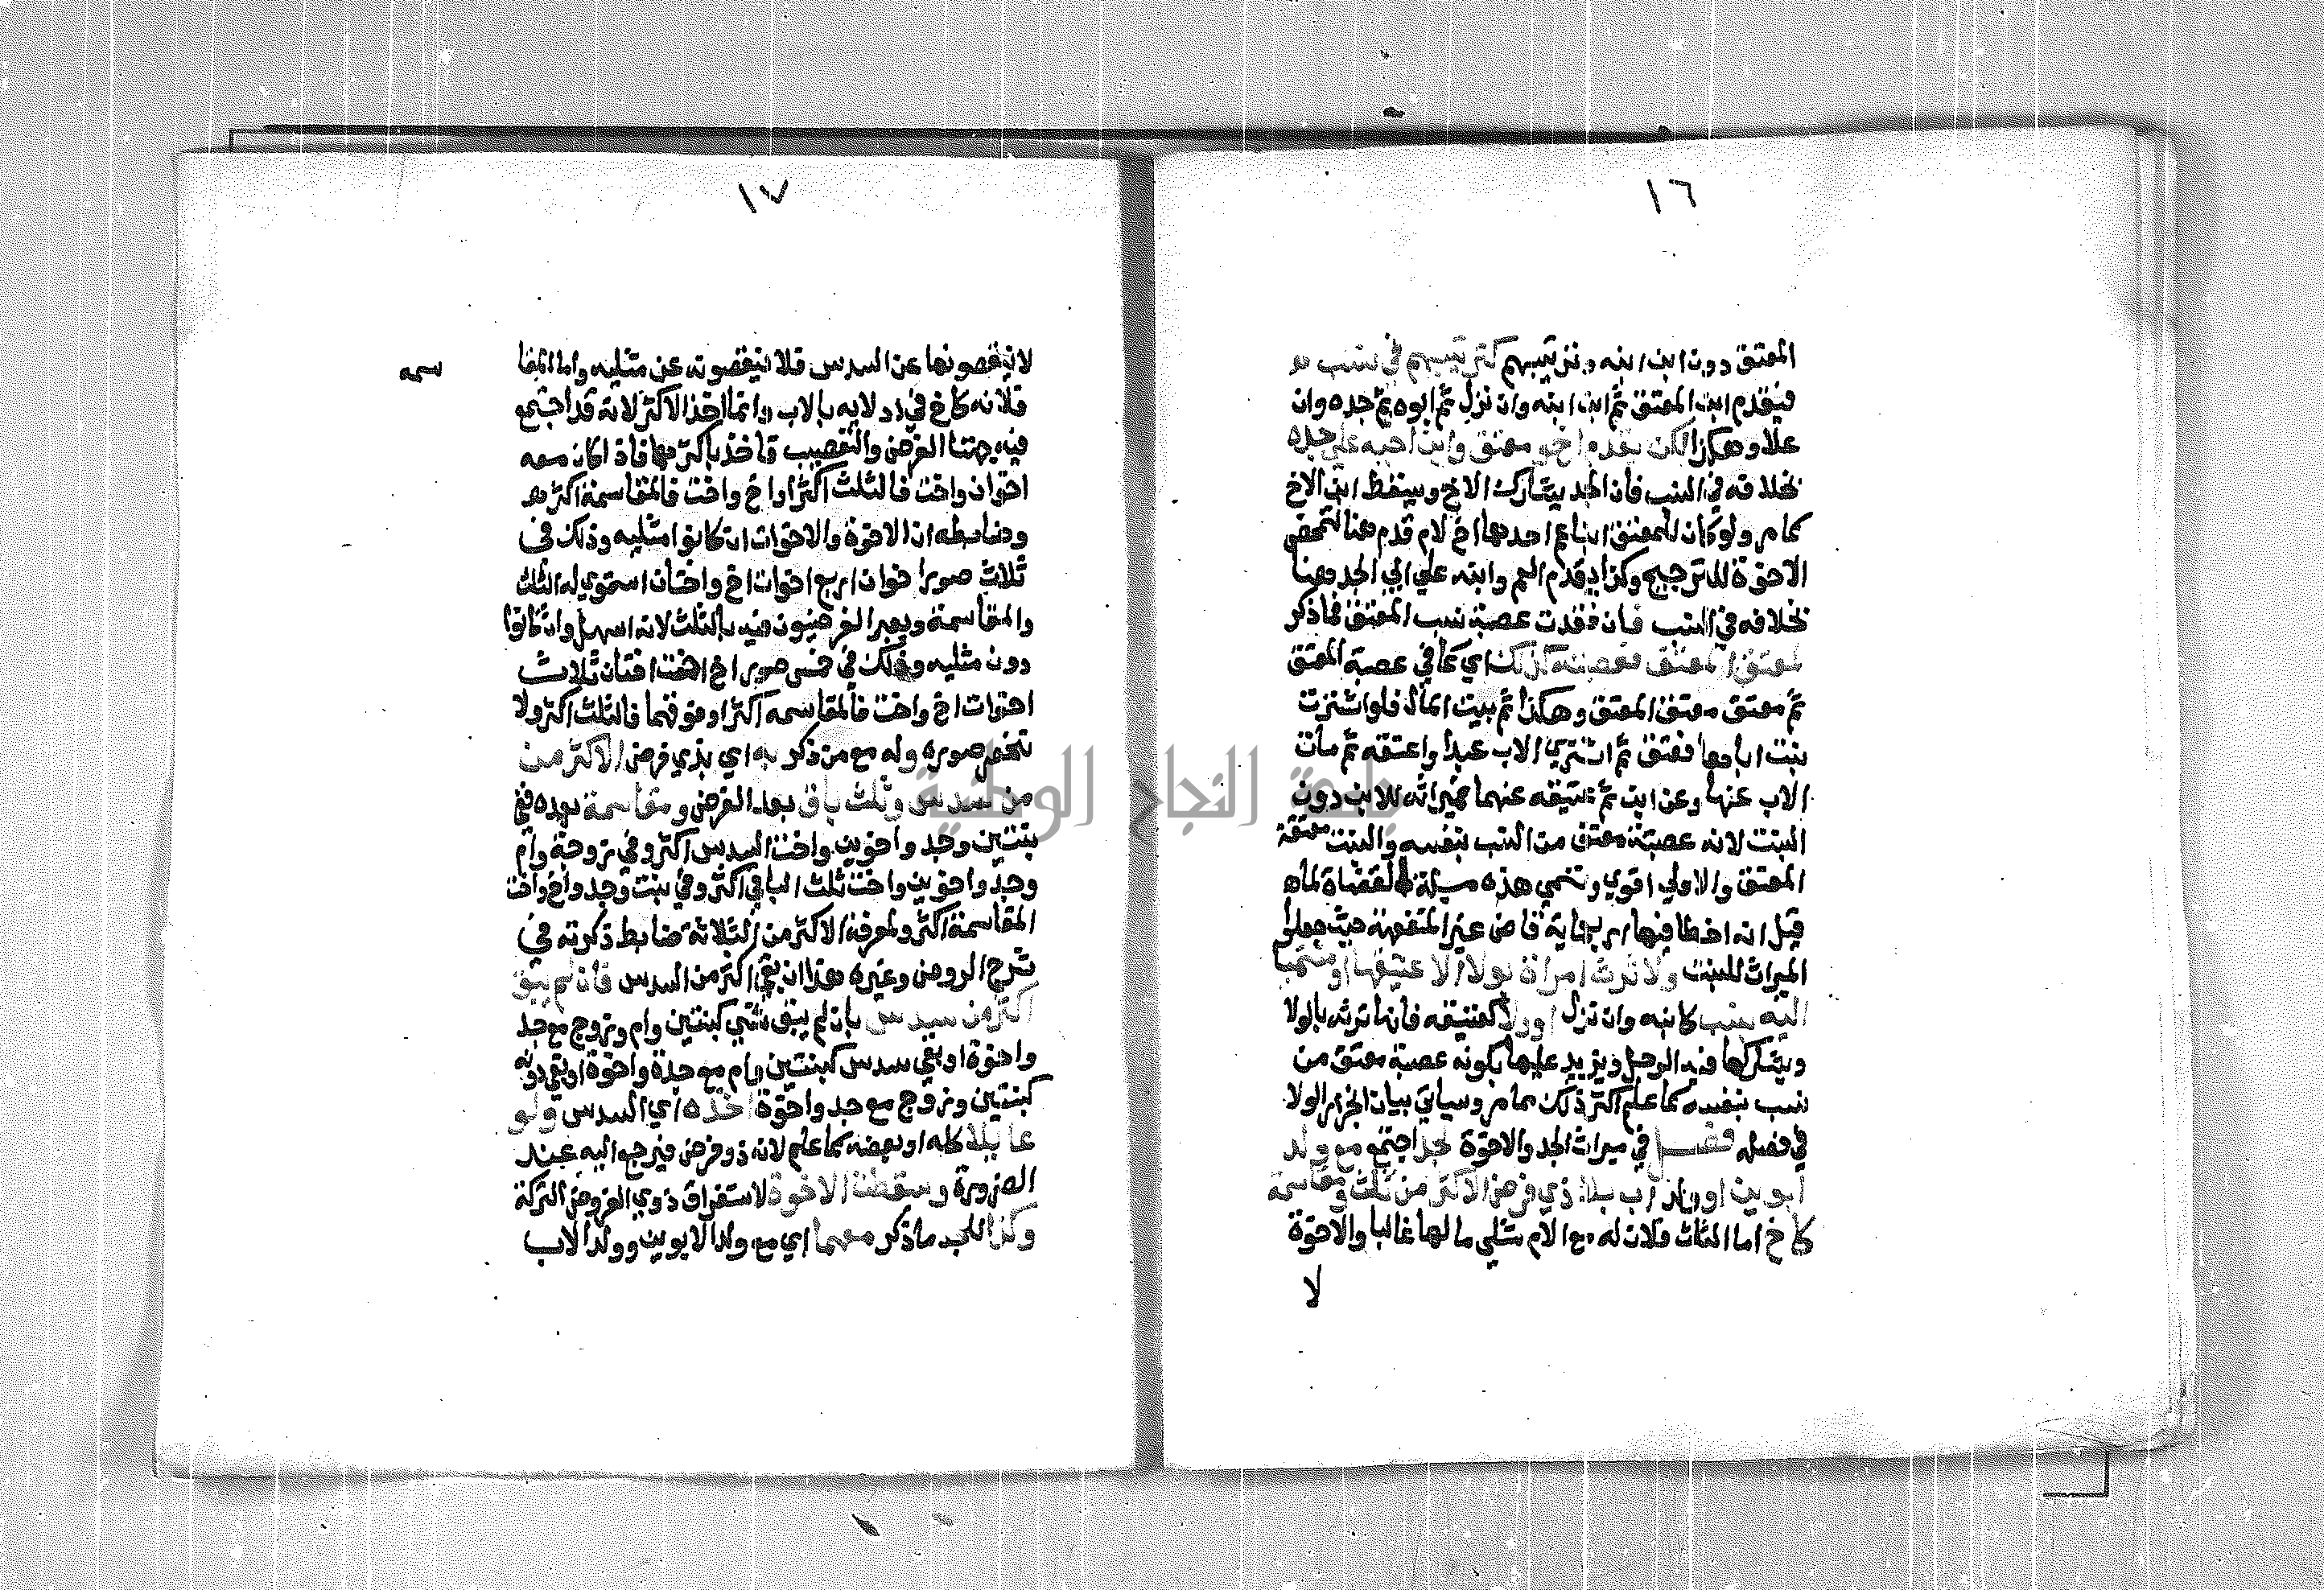 ١٦
المعتق دون ابن ابنه وترتيبهم كترتيبهم في نسب
فيقدم ابن المعتق ثم ابن ابنه وان نزل ثم ابوه ثم جده وان
علا وهكذا لكن يقدم اخو معتق وابن اخيه علي جده
بخلافه في النسب فان الجد يشارك الاخ ويسقط ابن الاخ
كما مر ولو كان للمعتق ابنا عم احدهما اخ لام قدم هنا لتمحض
الاخوة للترجيح وكذا يقدم العم وابنه علي ابي الجد وهنا
بخلافه في النسب فان فقدت عصبة نسب المعتق فما ذكر
لمعتق المعتق فعصبته كذلك اي كما في عصبة المعتق
ثم معتق معتق المعتق وهكذا ثم بيت المال فلو اشترت
بنت اباها فعتق ثم اشتري الاب عبدا واعتقه ثم مات
الاب عنها وعن ابن ثم عتيقه عنهما فميراثه للابن دون
البنت لانه عصبة معتق من النسب بنفسه والبنت معتقة
المعتق والاولي اقوي وتسمي هذه مسيلة القضاة لما
قيل انه اخطا فيها اربعماية قاض غير المتفقهة حيث جعلوا
الميراث للبنت ولا ترث امراة بولا الا عتيقها او منتميا
اليه بنسب كابنه وان نزل او ولا كعتيقه فانها ترثه بالولا
ويشاركها فيه الرجل ويزيد عليها بكونه عصبة معتق من
نسب بنفسه كما علم اكثر ذلك مما مر وسياتي بيان الولا
في فصله فصل في ميراث الجد والاخوة لجد اجتمع مع ولد
ابوين او ولد اب بلا ذي فرض الاكثر من ثلث ومقاسمة
كاخ اما الثلث فلان له مع الام مثلي ما لها غالبا والاخوة
لا
١٧
لا ينقصونها عن السدس فلا ينقصونه عن مثليه واما المقا
سمه
فلانه كاخ في ادلايه بالاب وانما اخذ الاكثر لانه قد اجتمع
فيه جهتا الفرض والتعصيب فاخذ باكثرهما فاذا كان معه
اخوان واخت فالثلث اكثر او اخ واخت فالمقاسمة اكثر
وضابطه ان الاخوة والاخوات ان كانوا مثليه وذلك في
ثلاث صور اخوان اربع اخوات اخ واختان استوي له الثلث
والمقاسمة ويعبر الفرضيون فيه بالثلث لانه اسهل وان كانوا
دون مثليه وذلك في خمس صور اخ اخت اختان ثلاث
اخوات اخ واخت فالمقاسمه اكثر او فوقهما فالثلث اكثر ولا
تنحصر صوره وله مع من ذكر به اي بذي فرض الاكثر من
من سدس وثلث باق بعد الفرض ومقاسمة بعده ففي
بنتين وجد واخوين واخت السدس اكثر وفي زوجة وام
وجد واخوين واخت ثلث الباقي اكثر وفي بنت وجد واخ واخت
المقاسمة اكثر ولمعرفة الاكثر من الثلاثة ضابط ذكرته في
شرح الروض وغيره هذا ان بقي اكثر من السدس فان لم يبق
اكثر من سدس بان لم يبق شي كبنتين وام وزوج مع جد
واخوة او بقي سدس كبنتين وام مع جد واخوة او بقي دونه
كبنتين وزوج مع جد واخوة اخذه اي السدس ولو
عايلا كله او بعضه كما علم لانه ذو فرض فيرجع اليه عند
الضرورة وسقطت الاخوة لاستغراق ذوي الفروض التركة
وكذا للجد ما ذكر معهما اي مع ولد الابوين وولد الاب
جامعة النجاح الوطنية